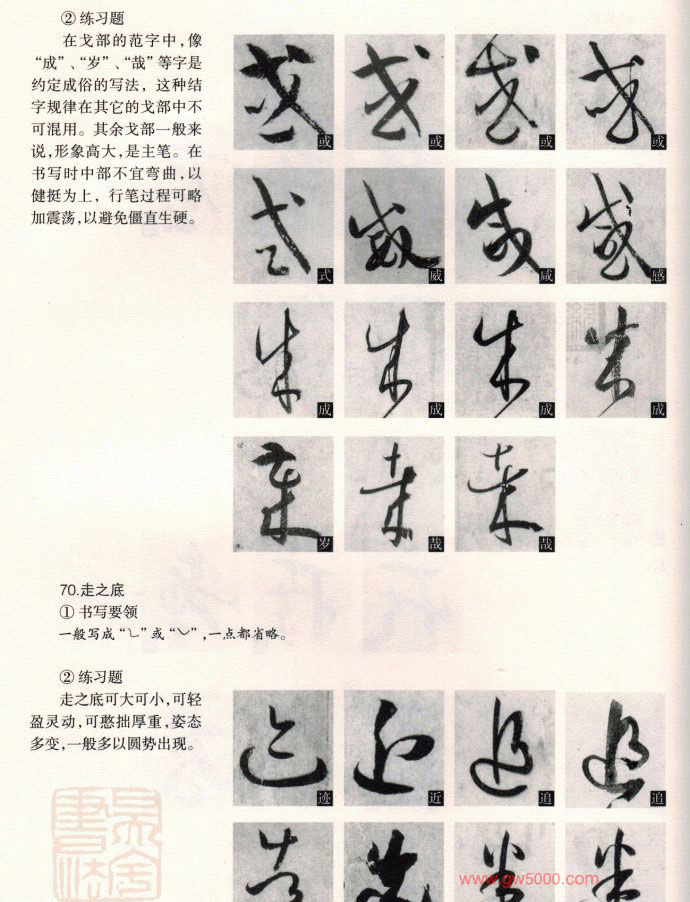 ② 练习题
在戈部的范字中,像
“成”、“岁”、“哉”等字是
约定成俗的写法，这种结
字规律在其它的戈部中不
可混用。其余戈部一般来
说,形象高大,是主笔。在
书写时中部不宜弯曲,以
健挺为上，行笔过程可略
加震荡,以避免僵直生硬。
或 或 或 或
式 威 咸 感
成 成 成 成
岁 哉 哉
70.走之底
① 书写要领
一般写成“㇄”或“㇃”,一点都省略。
② 练习题
走之底可大可小,可轻
盈灵动,可憨拙厚重,姿态
多变,一般多以圆势出现。
迹 近 追 追
www.gw5000.com